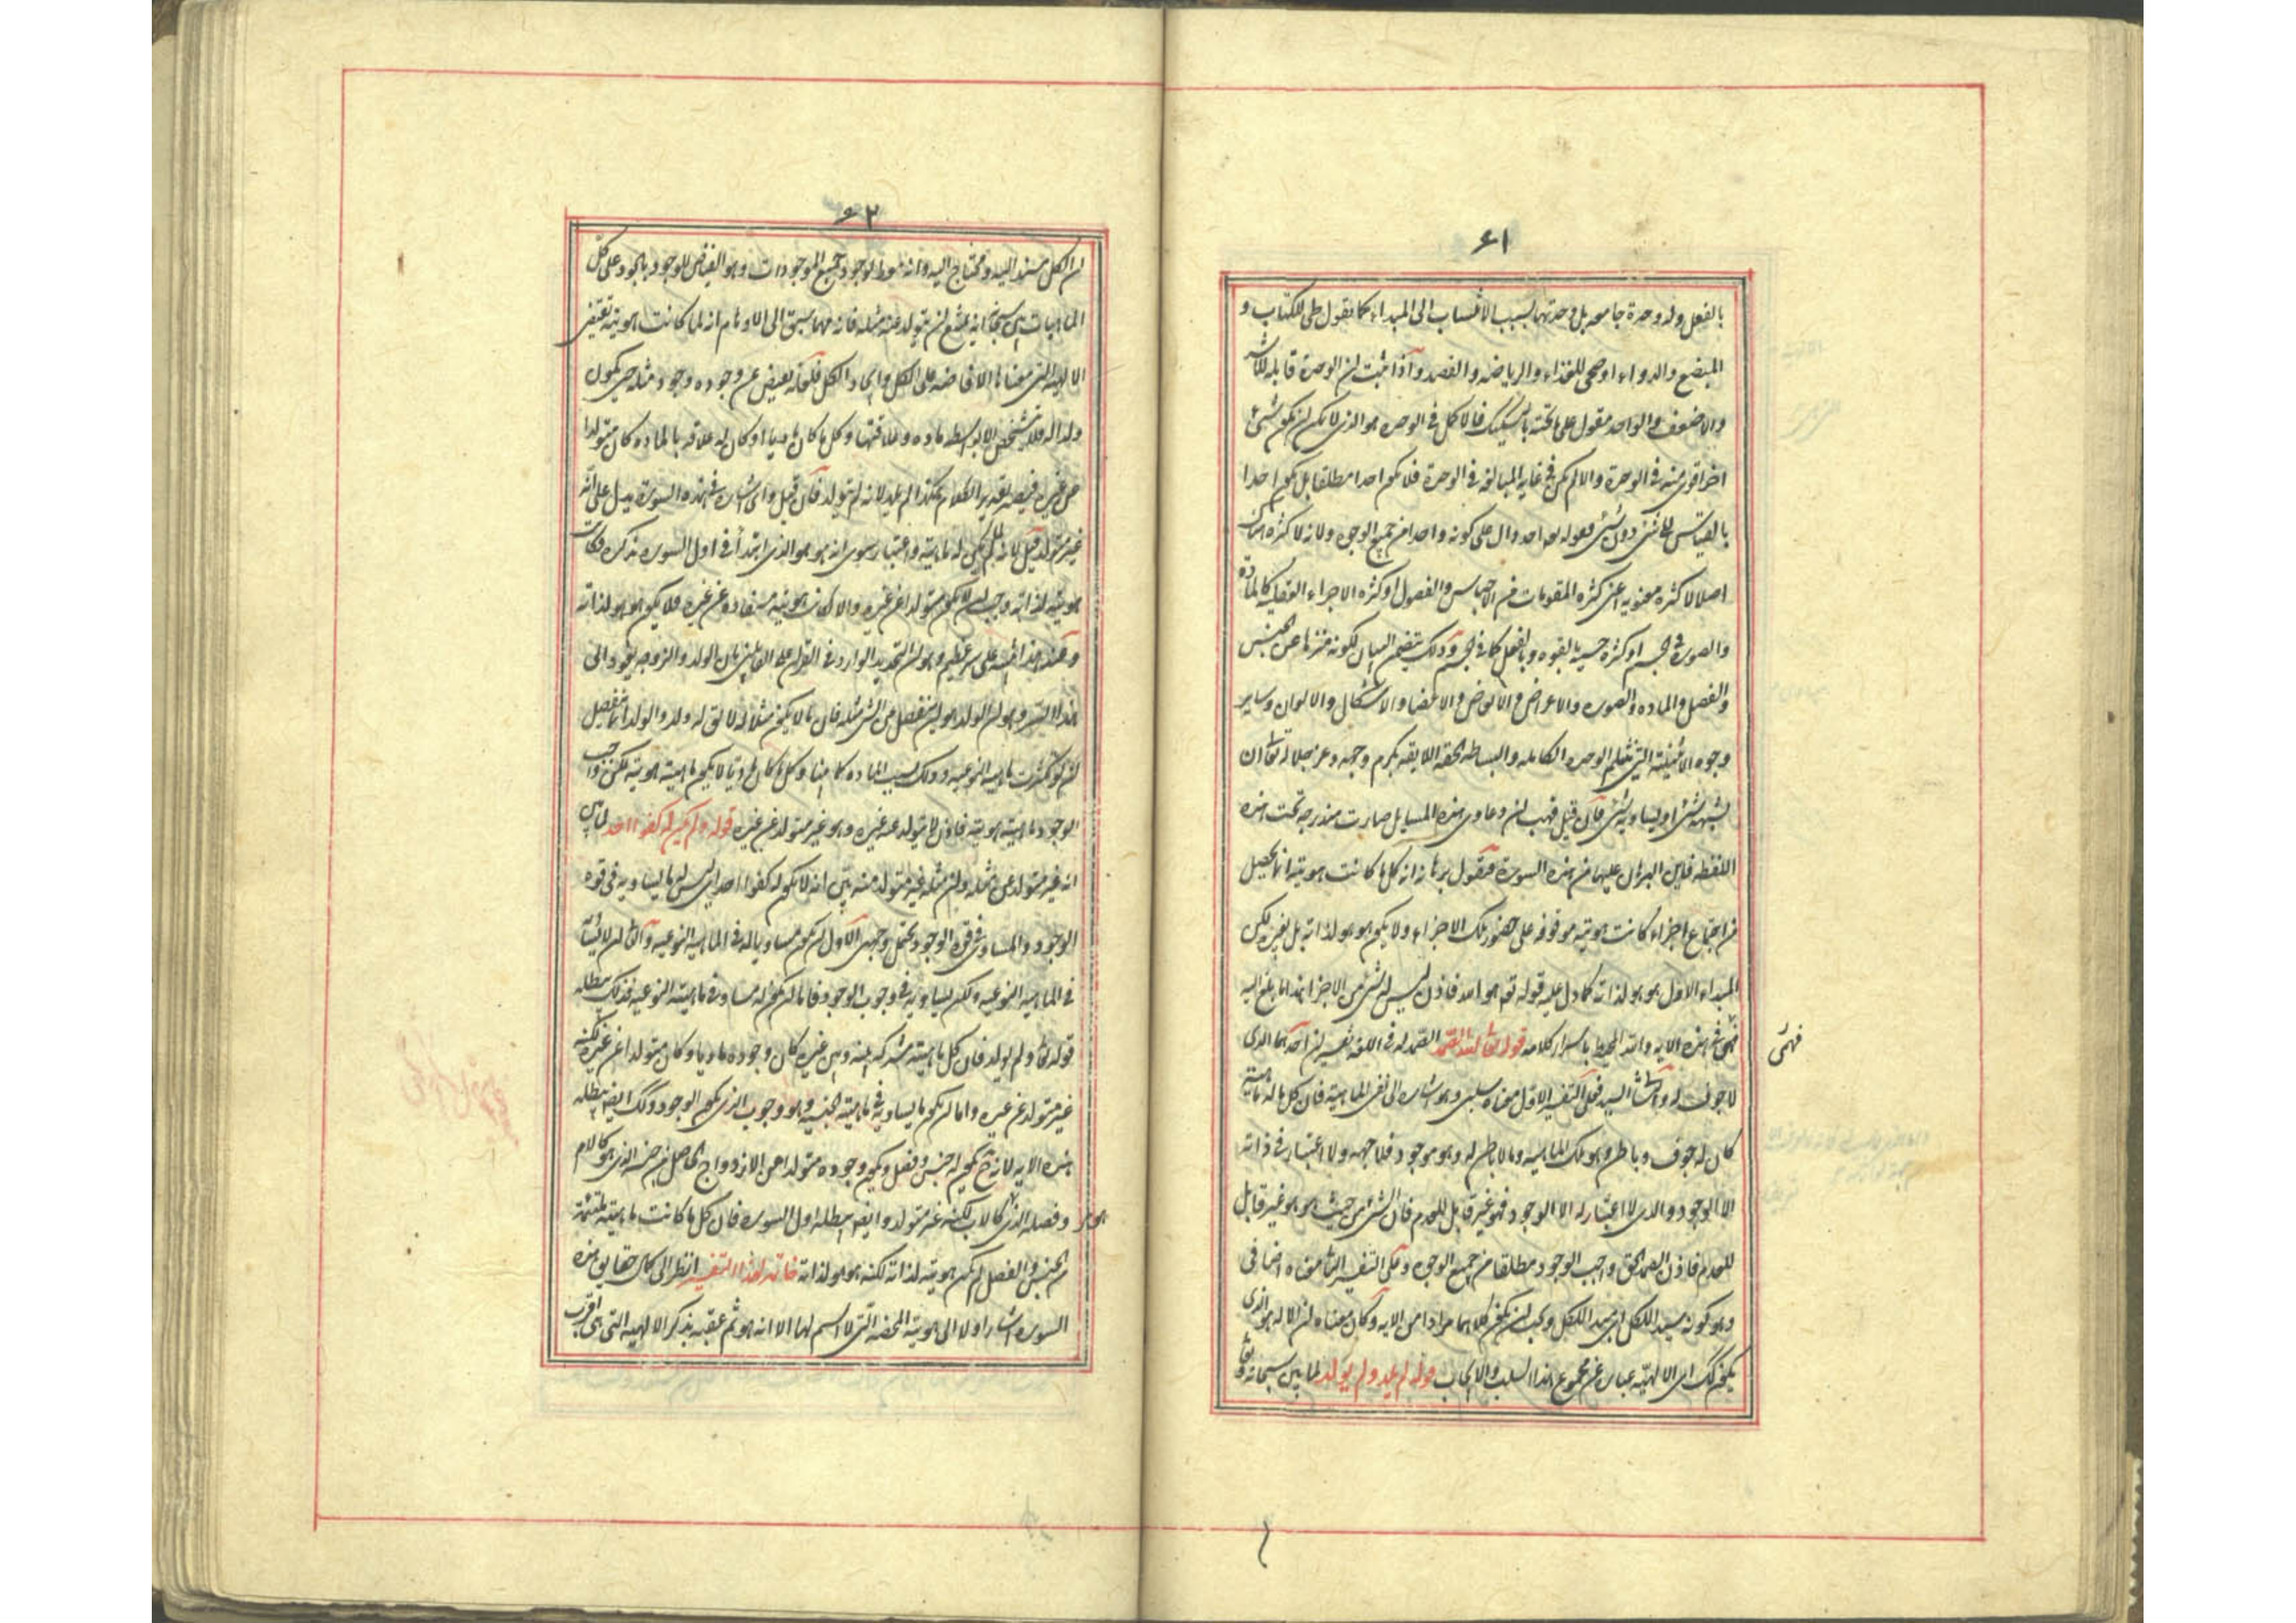 ۶۱
بالفعل وله وحدة جامعه بل وحدتهما بسبب الانتساب الی المبداء کما تقول طبی للکتاب و
المبضع والدواء او صحی للغذاء والریاضه والفصد وآذا ثبت ان الوحدة قابله للاشد
والاضعف والواحد مقول علی ما تحته بالتشکیک فالاکمل فی الوحده هو الذی لا یمکن ان یکون شیء
اخر اقوی منه فی الوحدة والا لم یکن فی غایه المبالغه فی الوحدة فلا یکون احدا مطلقا بل یکون احدا
بالقیاس الی شیء دون شیء فقوله هو احد دال علی کونه واحدا من جمیع الوجوه ولانه لا کثره هناک
اصلا لا کثره معنویه اعنی کثره المقومات من الاجناس والفصول او کثره الاجزاء العقلیه کالماده
والصوره فی الجسم او کثره حسیه بالقوه وبالفعل کما فی الجسم وذلک یتضمن البیان لکونه منزها عن الجنس
والفصل والماده والصوره والاعراض والابعاض والاعضا والاشکال والالوان وسایر
وجوه الاثنینیه التی تثلم الوحده الکامله والبساطه الحقه اللایقه بکرم وجهه وعز جلاله تعالی ان
یشبهه شیء او یساویه شیء فآن قیل فهب ان دعاوی هذه المسایل صارت مندرجه تحت هذه
اللفظه فاین البرهان علیها من هذه السوره فنقول برهانه ان کل ما کانت هویته انما تحصل
من اجتماع اجزاء کانت هویته موقوفه علی حضور تلک الاجزاء ولا یکون هو هو لذاته بل لغیره لکن
المبداء الاول هو هو لذاته کما دل علیه قوله تع هو احد فاذن لیس له شیء من الاجزا هذا ما بلغ الیه
فهمی فی هذه الایه والله المحیط باسرار کلامه قوله تعالی الله الصمد الصمد له فی اللغه تفسیران احدهما الذی
لا جوف له والثانی السید فعلی التفسیر الاول معناه سلبی وهو اشاره الی نفی الماهیه فان کل ما له ماهیه
کان له جوف وباطن وهو تلک الماهیه وما لا باطن له وهو موجود فلا جهه ولا اعتبار فی ذاته
الا الوجود والذی لا اعتبار له الا الوجود فهو غیر قابل للعدم فان الشیء من حیث هو هو غیر قابل
للعدم فاذن الصمد الحق واجب الوجود مطلقا من جمیع الوجوه وعلی التفسیر الثانی معناه اضافی
وهو کونه سیدا للکل ای مبداء للکل ویجب ان یکون کلاهما مرادا من الایه وکان معناه ان الاله هو الذی
یکون کذلک ای الالهیه عبارة عن مجموع هذا السلب والایجاب قوله لم یلد ولم یولد لما بین سبحانه وتعالی
فهمی
۶۲
ان الکل مستند الیه ومحتاج الیه وانه معط لوجود جمیع الموجودات وهو الفیاض للوجود بالجود علی کل
الماهیات بین سبحانه انه یمتنع ان یتولد عنه مثله فانه مهما سبق الی الاوهام انه لما کانت هویته تقتضی
الالهیه التی معناها الافاضه علی الکل وایجاد الکل فلعله یفیض عن وجوده وجود مثله حتی یکون
ولدا له فلا یتشخص الا بواسطه ماده وعلاقتها وکل ما کان مادیا او کان له علاقه بالماده کان متولدا
عن غیره فیصیر تقدیر الکلام هکذا لم یلد لانه لم یتولد فآن قیل وای اشاره فی هذه السوره یدل علی انه
غیر متولد قیل لانه لما لم یکن له ماهیه واعتبار سوی انه هو هو الذی ابتدأ فی اول السوره بذکره وکانت
هویته لذاته وجب ان لا یکون متولدا عن غیره والا لکانت هویته مستفاده عن غیره فلا یکون هو هو لذاته
وعند هذا ننبه علی سر عظیم وهو ان التحدید الوارد فی القران علی القائلین بان الولد والزوجه یعود الی
هذا السر وهو ان الولد هو ان ینفصل من الشیء مثله فان ما لا یکون مثلا له لا یق له ولد والولد انما ینفصل
ان لو تکثرت ماهیه النوعیه وذلک بسبب الماده کما بینا وکل ما کان مادیا لا یکون ماهیته هویته لکن واجب
الوجود ماهیته هویته فاذن لا یتولد عنه غیره وهو غیر متولد عن غیره قوله ولم یکن له کفوا احد لما بین
انه غیر متولد عن مثله وان مثله غیر متولد منه بین انه لا یکون له کفوا احد ای لیس له ما یساویه فی قوه
الوجود والمساوی فی قوه الوجود یحتمل وجهین الاول ان یکون مساویا له فی الماهیه النوعیه والثانی ان لا یساویه
فی الماهیه النوعیه ولکن یساویه فی وجوب الوجود فاما ان یکون له مساو فی ماهیته النوعیه فذلک یبطله
قوله تعالی ولم یولد فان کل ماهیته مشترکه بینه وبین غیره کان وجوده مادیا وکان متولدا عن غیره لکنه
غیر متولد عن غیره واما ان یکون ما یساویه فی ماهیته الجنسیه وهو وجوب الذی یکون الوجود وذلک ایضا یبطله
هذه الایه لانه ح یکون له جنس وفصل ویکون وجوده متولدا من الازدواج الحاصل من جنسه الذی هو کالام
وفصله الذی هو کالاب لکنه غیر متولد وایضا یبطله اول السوره فان کل ما کانت ماهیته ملتئمة
من الجنس والفصل لم یکن هویته لذاته لکنه هو هو لذاته خاتمه لهذا التفسیر انظر الی کمال حقایق هذه
السوره اشار اولا الی هویته المحضه التی لا اسم لها الا انه هو ثم عقبه بذکر الالهیه التی هی اقرب
هو